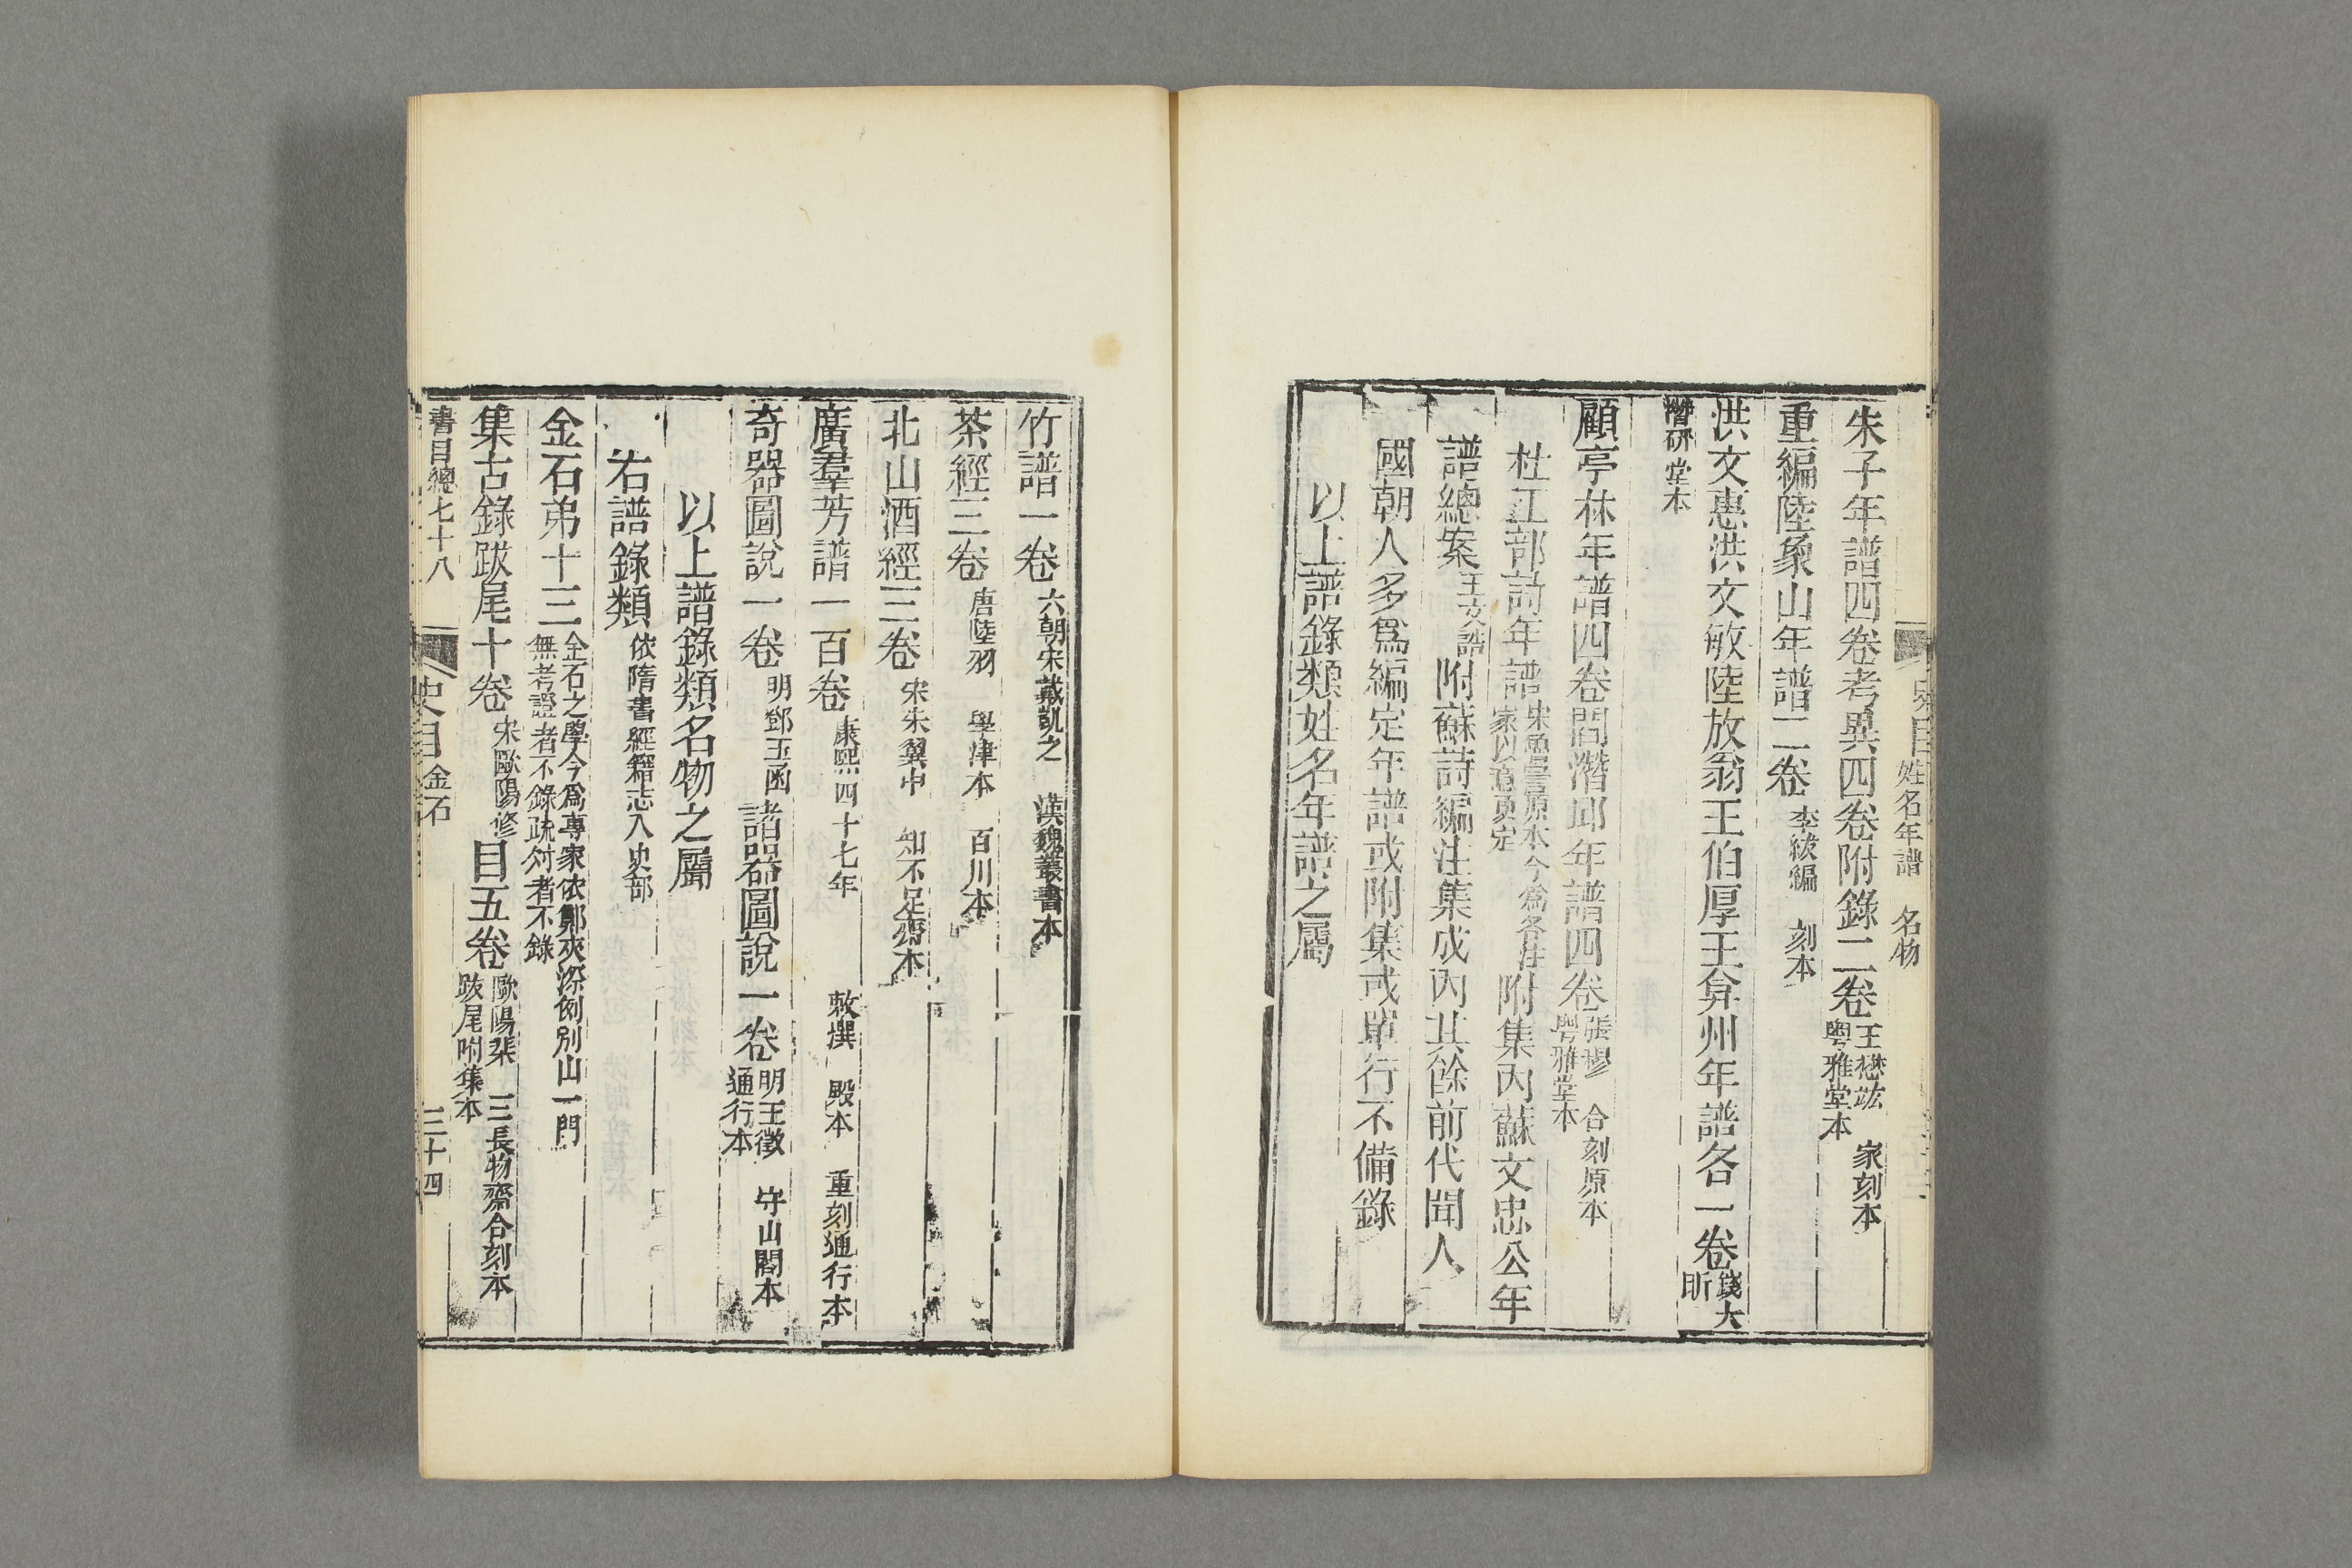 史目 姓名年譜 名物
朱子年譜四卷考異四卷附錄二卷 王懋竑 家刻本 粵雅堂本
重編陸象山年譜二卷 李紱編 刻本
洪文惠洪文敏陸放翁王伯厚王弇州年譜各一卷 錢大昕
潛研堂本
顧亭林年譜四卷閻潛邱年譜四卷 張穆 合刻原本 粵雅堂本
杜工部詩年譜 宋魯訔原本今爲各注家以意更定 附集內蘇文忠公年
譜總案 王文誥 附蘇詩編注集成內其餘前代聞人
國朝人多爲編定年譜或附集或單行不備錄
以上譜錄類姓名年譜之屬
竹譜一卷 六朝宋戴凱之 漢魏叢書本
茶經三卷 唐陸羽 學津本 百川本
北山酒經三卷 宋朱翼中 知不足齋本
廣羣芳譜一百卷 康熙四十七年 敕撰 殿本 重刻通行本
奇器圖說一卷 明鄧玉函 諸器圖說一卷 明王徵 守山閣本 通行本
以上譜錄類名物之屬
右譜錄類 依隋書經籍志入史部
金石弟十三 金石之學今爲專家依鄭夾漈例別出一門無考證者不錄疏舛者不錄
集古錄跋尾十卷 宋歐陽修 目五卷 歐陽棐 三長物齋合刻本 跋尾附集本
書目總七十八 史目 金石 三十四